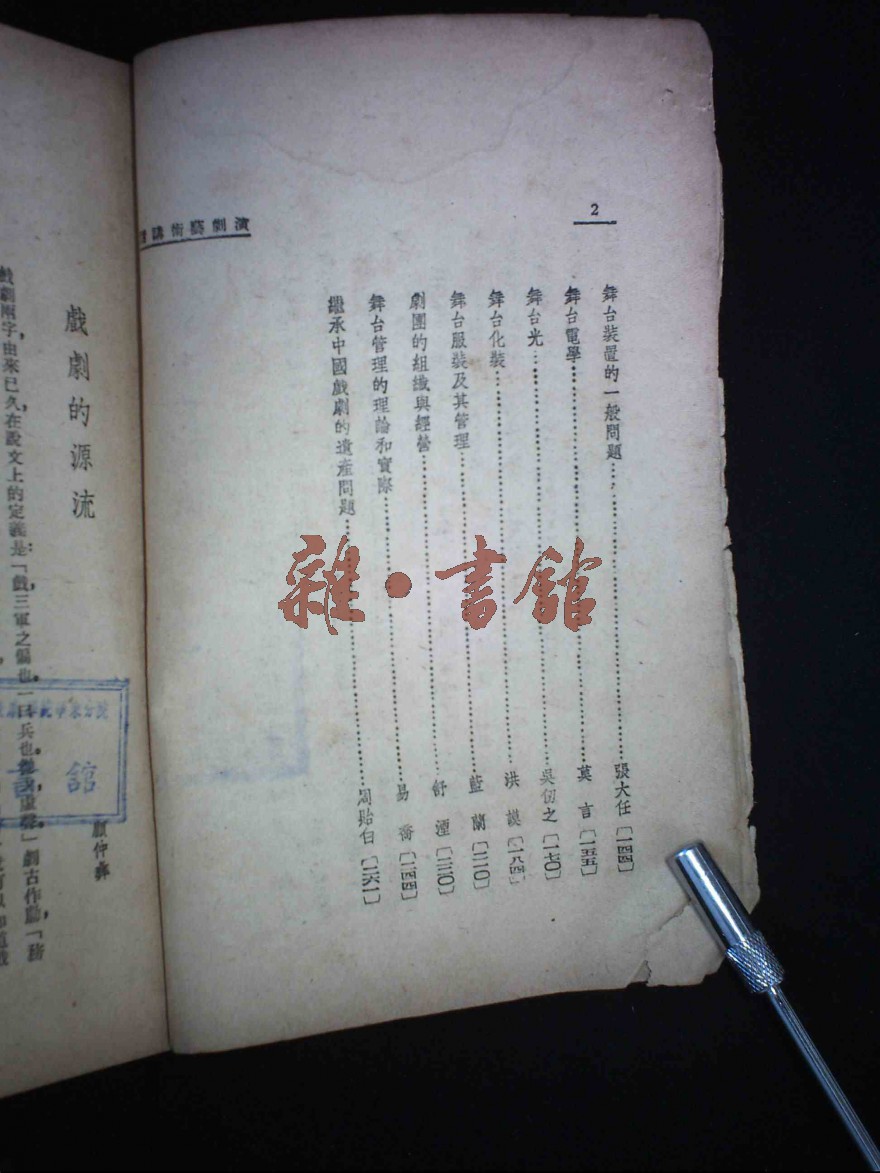 2
演劇藝術講
舞台裝置的一般問題……張大任〔一四四〕
舞台電學……莫言〔一五五〕
舞台光……吳仞之〔一七〇〕
舞台化裝……洪謨〔一八四〕
舞台服裝及其管理……藍蘭〔二一〇〕
劇團的組織與經營……舒湮〔二三〇〕
舞台管理的理論和實際……易喬〔二四四〕
繼承中國戲劇的遺產問題……周貽白〔二六一〕
雜·書館
戲劇的源流
顧仲彝
戲劇兩字，由來已久，在說文上的定義是：「戲，三軍之偏也，一曰兵也
劇古作勮，「務
館